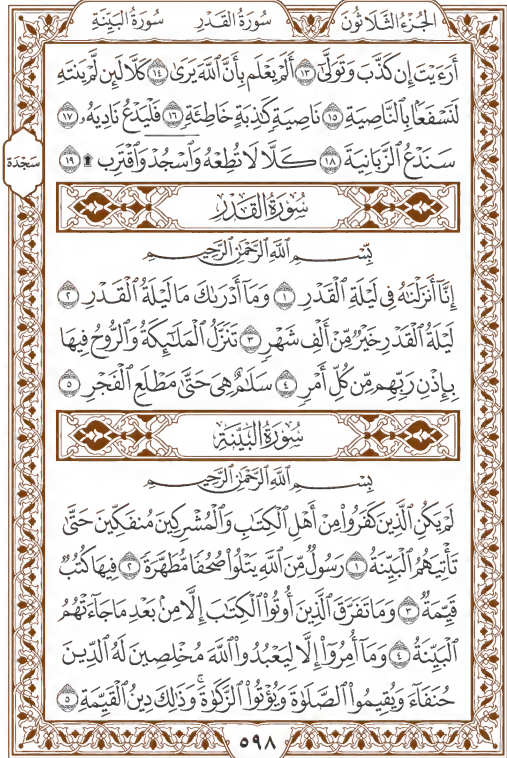 الجُزْءُ الثَّلَاثُونَ سُورَةُ القَدْرِ سُورَةُ البَيِّنَةِ
أَرَءَيْتَ إِن كَذَّبَ وَتَوَلَّىٰٓ ١٣ أَلَمْ يَعْلَم بِأَنَّ ٱللَّهَ يَرَىٰ ١٤ كَلَّا لَئِن لَّمْ يَنتَهِ
لَنَسْفَعًۢا بِٱلنَّاصِيَةِ ١٥ نَاصِيَةٍ كَٰذِبَةٍ خَاطِئَةٍ ١٦ فَلْيَدْعُ نَادِيَهُۥ ١٧
سَنَدْعُ ٱلزَّبَانِيَةَ ١٨ كَلَّا لَا تُطِعْهُ وَٱسْجُدْ وَٱقْتَرِب ۩ ١٩
سَجْدَة
سُورَةُ القَدْرِ
بِسْمِ ٱللَّهِ ٱلرَّحْمَٰنِ ٱلرَّحِيمِ
إِنَّآ أَنزَلْنَٰهُ فِي لَيْلَةِ ٱلْقَدْرِ ١ وَمَآ أَدْرَىٰكَ مَا لَيْلَةُ ٱلْقَدْرِ ٢
لَيْلَةُ ٱلْقَدْرِ خَيْرٌ مِّنْ أَلْفِ شَهْرٍ ٣ تَنَزَّلُ ٱلْمَلَٰٓئِكَةُ وَٱلرُّوحُ فِيهَا
بِإِذْنِ رَبِّهِم مِّن كُلِّ أَمْرٍ ٤ سَلَٰمٌ هِيَ حَتَّىٰ مَطْلَعِ ٱلْفَجْرِ ٥
سُورَةُ البَيِّنَةِ
بِسْمِ ٱللَّهِ ٱلرَّحْمَٰنِ ٱلرَّحِيمِ
لَمْ يَكُنِ ٱلَّذِينَ كَفَرُوا۟ مِنْ أَهْلِ ٱلْكِتَٰبِ وَٱلْمُشْرِكِينَ مُنفَكِّينَ حَتَّىٰ
تَأْتِيَهُمُ ٱلْبَيِّنَةُ ١ رَسُولٌ مِّنَ ٱللَّهِ يَتْلُوا۟ صُحُفًا مُّطَهَّرَةً ٢ فِيهَا كُتُبٌ
قَيِّمَةٌ ٣ وَمَا تَفَرَّقَ ٱلَّذِينَ أُوتُوا۟ ٱلْكِتَٰبَ إِلَّا مِنۢ بَعْدِ مَا جَآءَتْهُمُ
ٱلْبَيِّنَةُ ٤ وَمَآ أُمِرُوٓا۟ إِلَّا لِيَعْبُدُوا۟ ٱللَّهَ مُخْلِصِينَ لَهُ ٱلدِّينَ
حُنَفَآءَ وَيُقِيمُوا۟ ٱلصَّلَوٰةَ وَيُؤْتُوا۟ ٱلزَّكَوٰةَ ۚ وَذَٰلِكَ دِينُ ٱلْقَيِّمَةِ ٥
٥٩٨